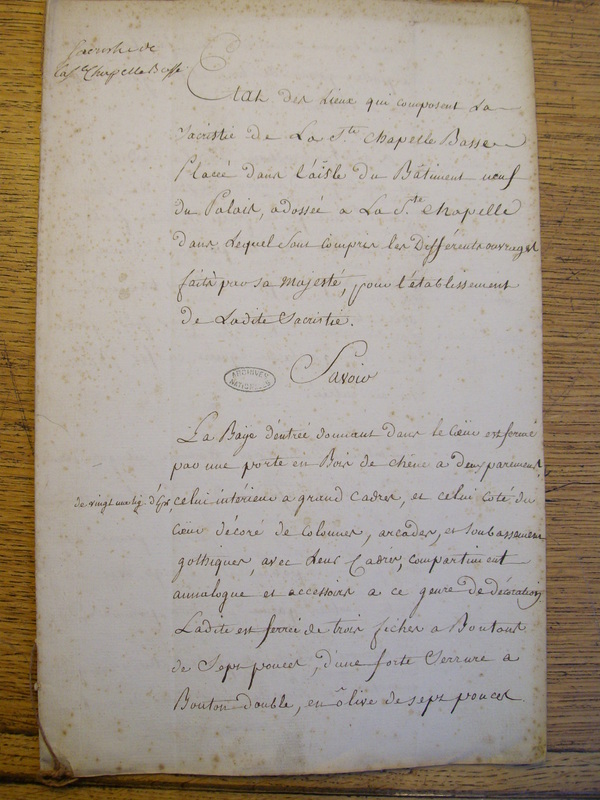 Sacristie de
la Ste Chapelle Basse
Etat des Lieux qui composent La
Sacristie de La Ste Chapelle Basse
Placée dans l'aisle du Bâtiment neuf
du Palais, adossée a La Ste Chapelle
dans Lequel sont compris les Différents ouvrages
faits par sa Majesté, pour l'établissement
de Ladite Sacristie.
ARCHIVES NATIONALES
Savoir
La Baye d'entrée donnant dans le Cœur est fermée
par une porte en Bois de chêne a deux parements
de vingt une lig d'Ep, celui intérieur a grand cadres, et celui coté du
Cœur décoré de colonnes, arcades, et Soubassement
gothiques, avec Leurs Cadres, compartiment
annalogue et accessoirs a ce genre de décoration
Ladite est ferrée de trois fiches a Boutons
de Sept pouces, d'une forte Serrure a
Bouton double, en ôlive de sept pouces